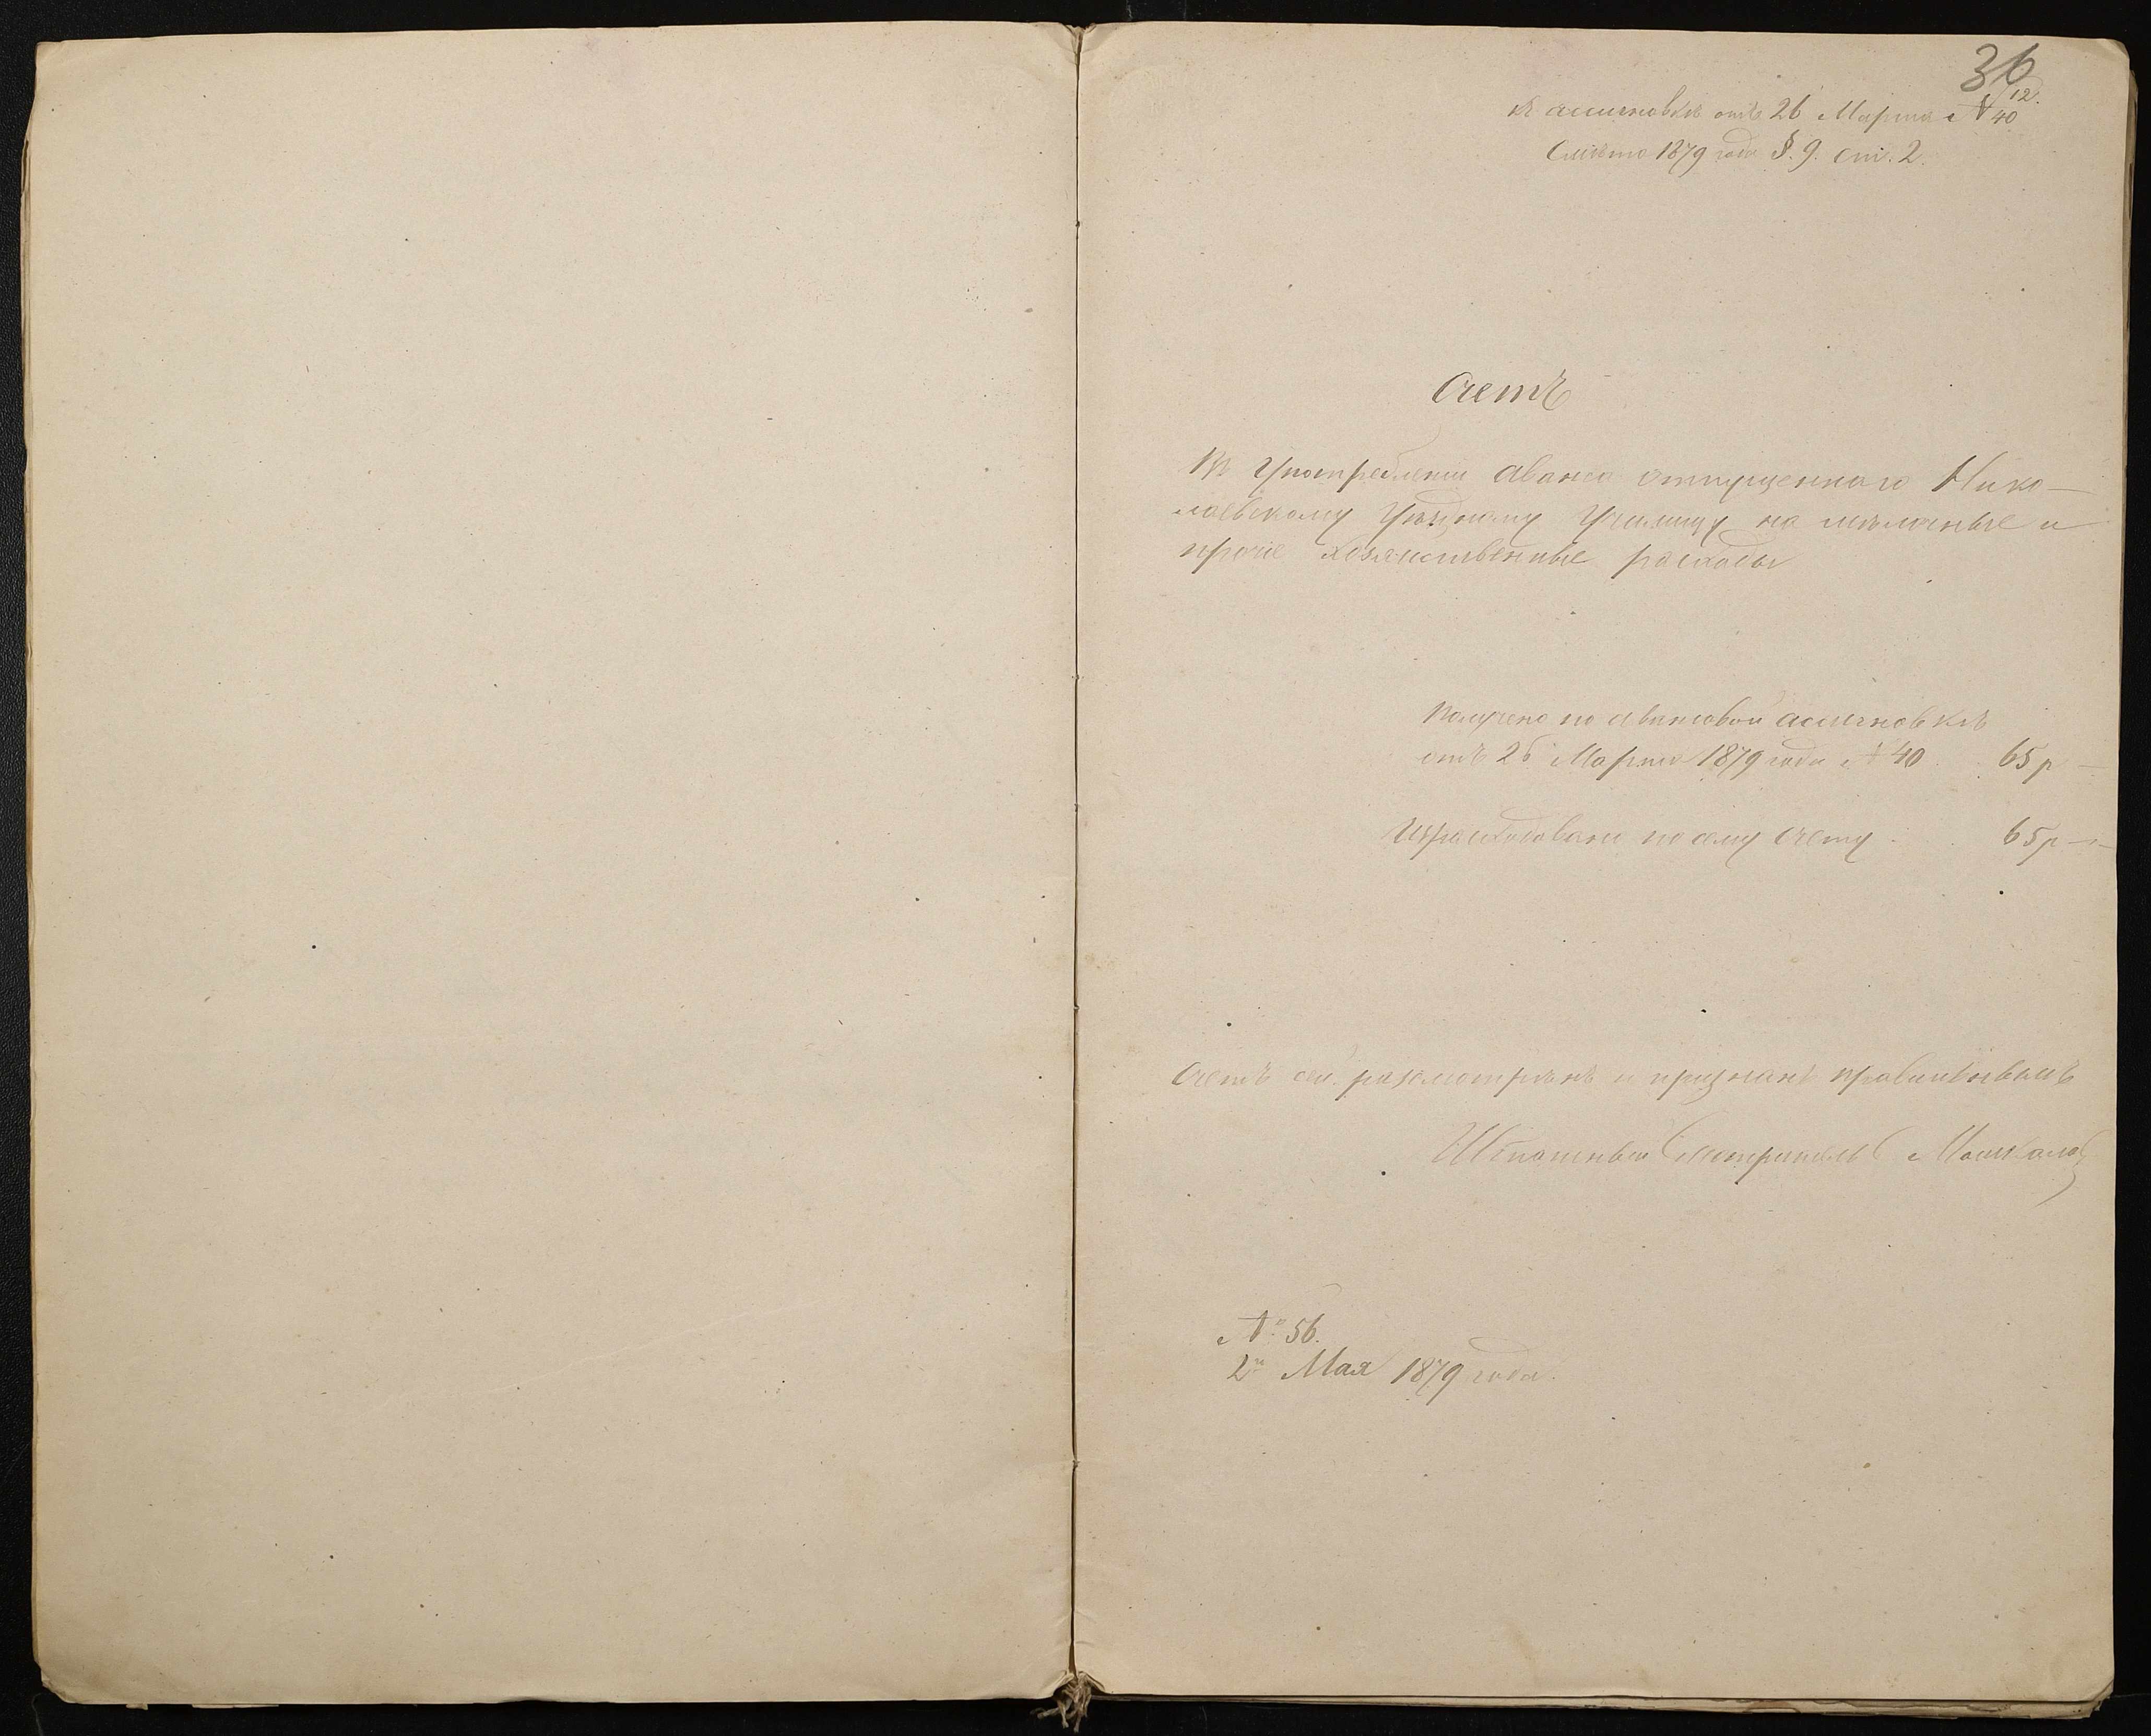 36
12.
къ ассигновкѣ отъ 26 Марта № 40
Смѣта 1879 года §. 9. ст. 2.
Счетъ
Въ Употребленіи аванса отпущеннаго Нико-
лаевскому Уѣздному Училищу на мѣлочные и
прочіе хозяйственные расходы
Получено по авансовой ассигновкѣ
отъ 26 Марта 1879 года № 40 65 р —
Израсходовано по сему Счету 65 р —
Счетъ сей разсмотрѣнъ и признанъ правильнымъ
Штатный Смотритель
№ 56.
2го Мая 1879 года.